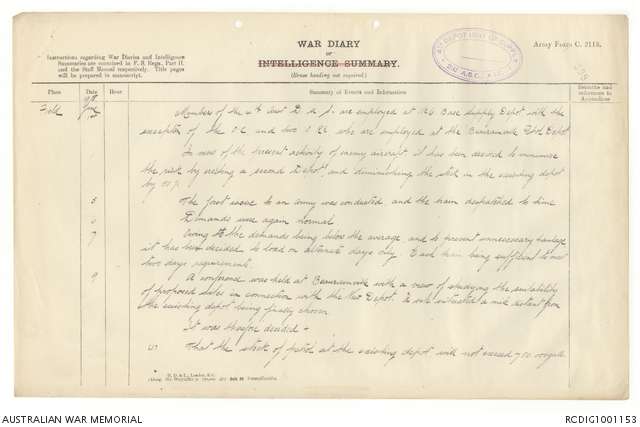 WAR DIARY
or
INTELLIGENCE SUMMARY.
(Erase heading not required.)
Army Form C. 2118.
Instructions regarding War Diaries and Intelligence
Summaries are contained in F. S. Regs., Part II.
and the Staff Manual respectively. Title pages
will be prepared in manuscript.
4TH DEPOT UNIT OF SUPPLY
Place Date Hour Summary of Events and Information Remarks and references to Appendices
Field
Members of the 4th Aust D.U.S. are employed at Base Supply Depot with the
exception of the O.C. and two who are employed at the Depot
In view of the present activity of enemy aircraft, it has been decided to minimise
the risk by erecting a second Depot, and diminishing the stock in the existing depot
by
5 The first issue to an army was conducted, and the train despatched to time
6 Demands were again normal
7 Owing to the demands being below the average and to prevent unnecessary haulage
it has been decided to load on alternate days only. Each train being sufficient to meet
two days requirement.
9 A conference was held at with a view of studying the suitability
of proposed sites in connection with the New Depot. A site situated a mile distant from
the existing depot being finally chosen.
It was therefore decided
(1) That the stock of petrol at the existing depot will not exceed
AUSTRALIAN WAR MEMORIAL
RCDIG1001153